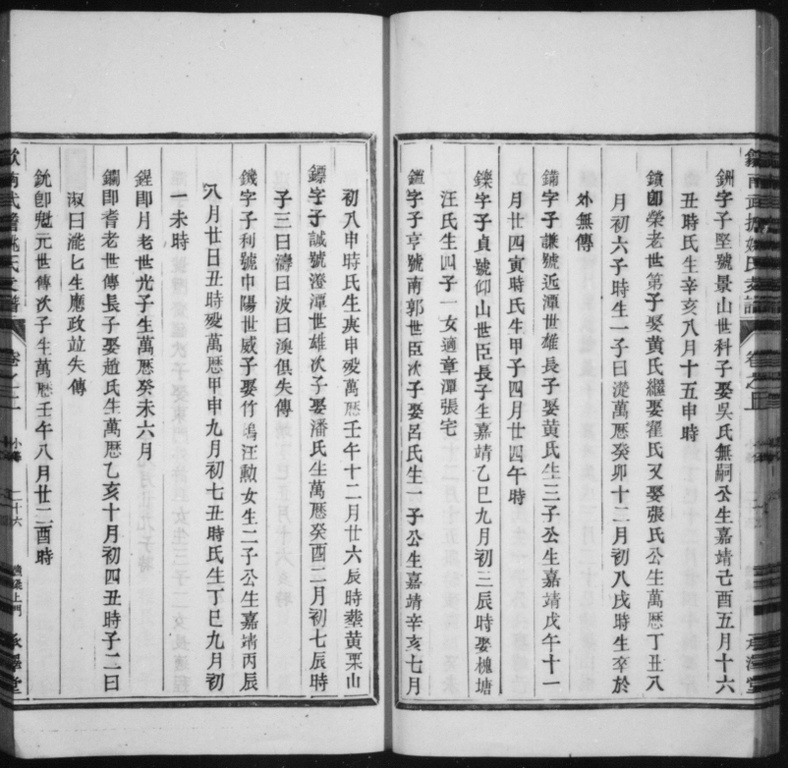 字子堅號景山世科子娶吳氏無嗣公生嘉靖己酉五月十六
丑時氏生辛亥八月十五申時
鎮卽榮老世第子娶黃氏繼娶翟氏又娶張氏公生萬歷丁丑八
月初六子時生一子曰漇萬歷癸卯十二月初八戌時生卒於
外無傳
鏞字子謙號近潭世雄長子娶黃氏生三子公生嘉靖戊午十一
月廿四寅時氏生甲子四月廿四午時
鑠字子貞號仰山世臣長子生嘉靖乙巳九月初三辰時娶槐塘
汪氏生四子一女適章潭張宅
字子亨號南郭世臣次子娶呂氏生一子公生嘉靖辛亥七月
初八申時氏生庚申歿萬歷壬午十二月廿六辰時葬黃栗山
鐔字子誠號澄潭世雄次子娶潘氏生萬歷癸酉二月初七辰時
子三曰濤曰波曰渙俱失傳
鐵字子利號中陽世威子娶竹塢汪勲女生二子公生嘉靖丙辰
八月廿日丑時歿萬歷甲申九月初七丑時氏生丁巳九月初
一未時
鍟卽月老世光子生萬歷癸未六月
鐗卽耆老世傳長子娶趙氏生萬歷乙亥十月初四丑時子二曰
淑曰瀧匕生應政竝失傳
銑卽魁元世傳次子生萬歷壬午八月廿二酉時
歙南武擔姚氏支譜
卷之二
二十六
承澤堂